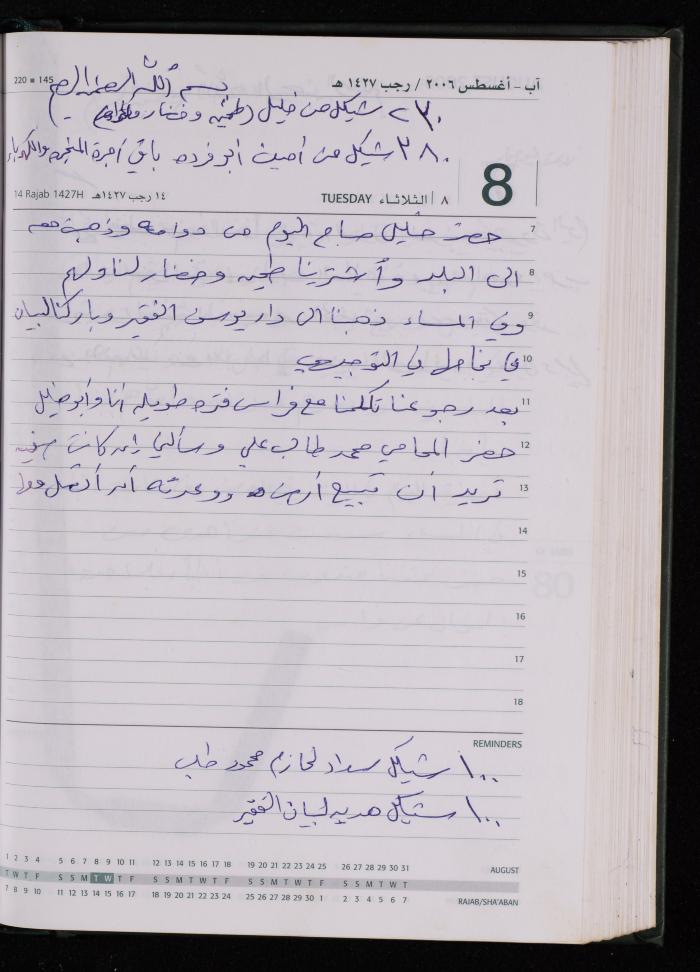 220 ■ 145
آب - أغسطس ٢٠٠٦ / رجب ١٤٢٧ هـ
بسم الله الرحمن الرحيم
٢٣٠ شيكل من خليل (طحين وخضار
٣٨٠ شيكل من أمين أبو فرده باقي أجرة المنجره والكهرباء
8
14 Rajab 1427H ١٤ رجب ١٤٢٧هـ TUESDAY الثلاثاء ٨
7 حضر خليل صباح اليوم من دوامه وذهبت معه
8 الى البلد وأشترينا طحين وخضار لنا ولهم
9 وفي المساء ذهبنا الى دار يوسف الفقير وباركنا لبيان
10 في نجاحها في التوجيهي
11 بعد رجوعنا تكلمنا مع فراس فتره طويله انا وأبو خليل
12 حضر المحامي محمد طالب علي وسألني إن كانت
13 تريد أن تبيع أرضها ووعدته أن أتصل معها
14
15
16
17
18
REMINDERS
١٠٠ شيكل سداد لحازم محمود طلب
١٠٠ شيكل هديه لبيان الفقير
1 2 3 4 5 6 7 8 9 10 11 12 13 14 15 16 17 18 19 20 21 22 23 24 25 26 27 28 29 30 31 AUGUST
T W T F S S M T W T F S S M T W T F S S M T W T F S S M T W T
7 8 9 10 11 12 13 14 15 16 17 18 19 20 21 22 23 24 25 26 27 28 29 30 1 2 3 4 5 6 7 RAJAB/SHA'ABAN